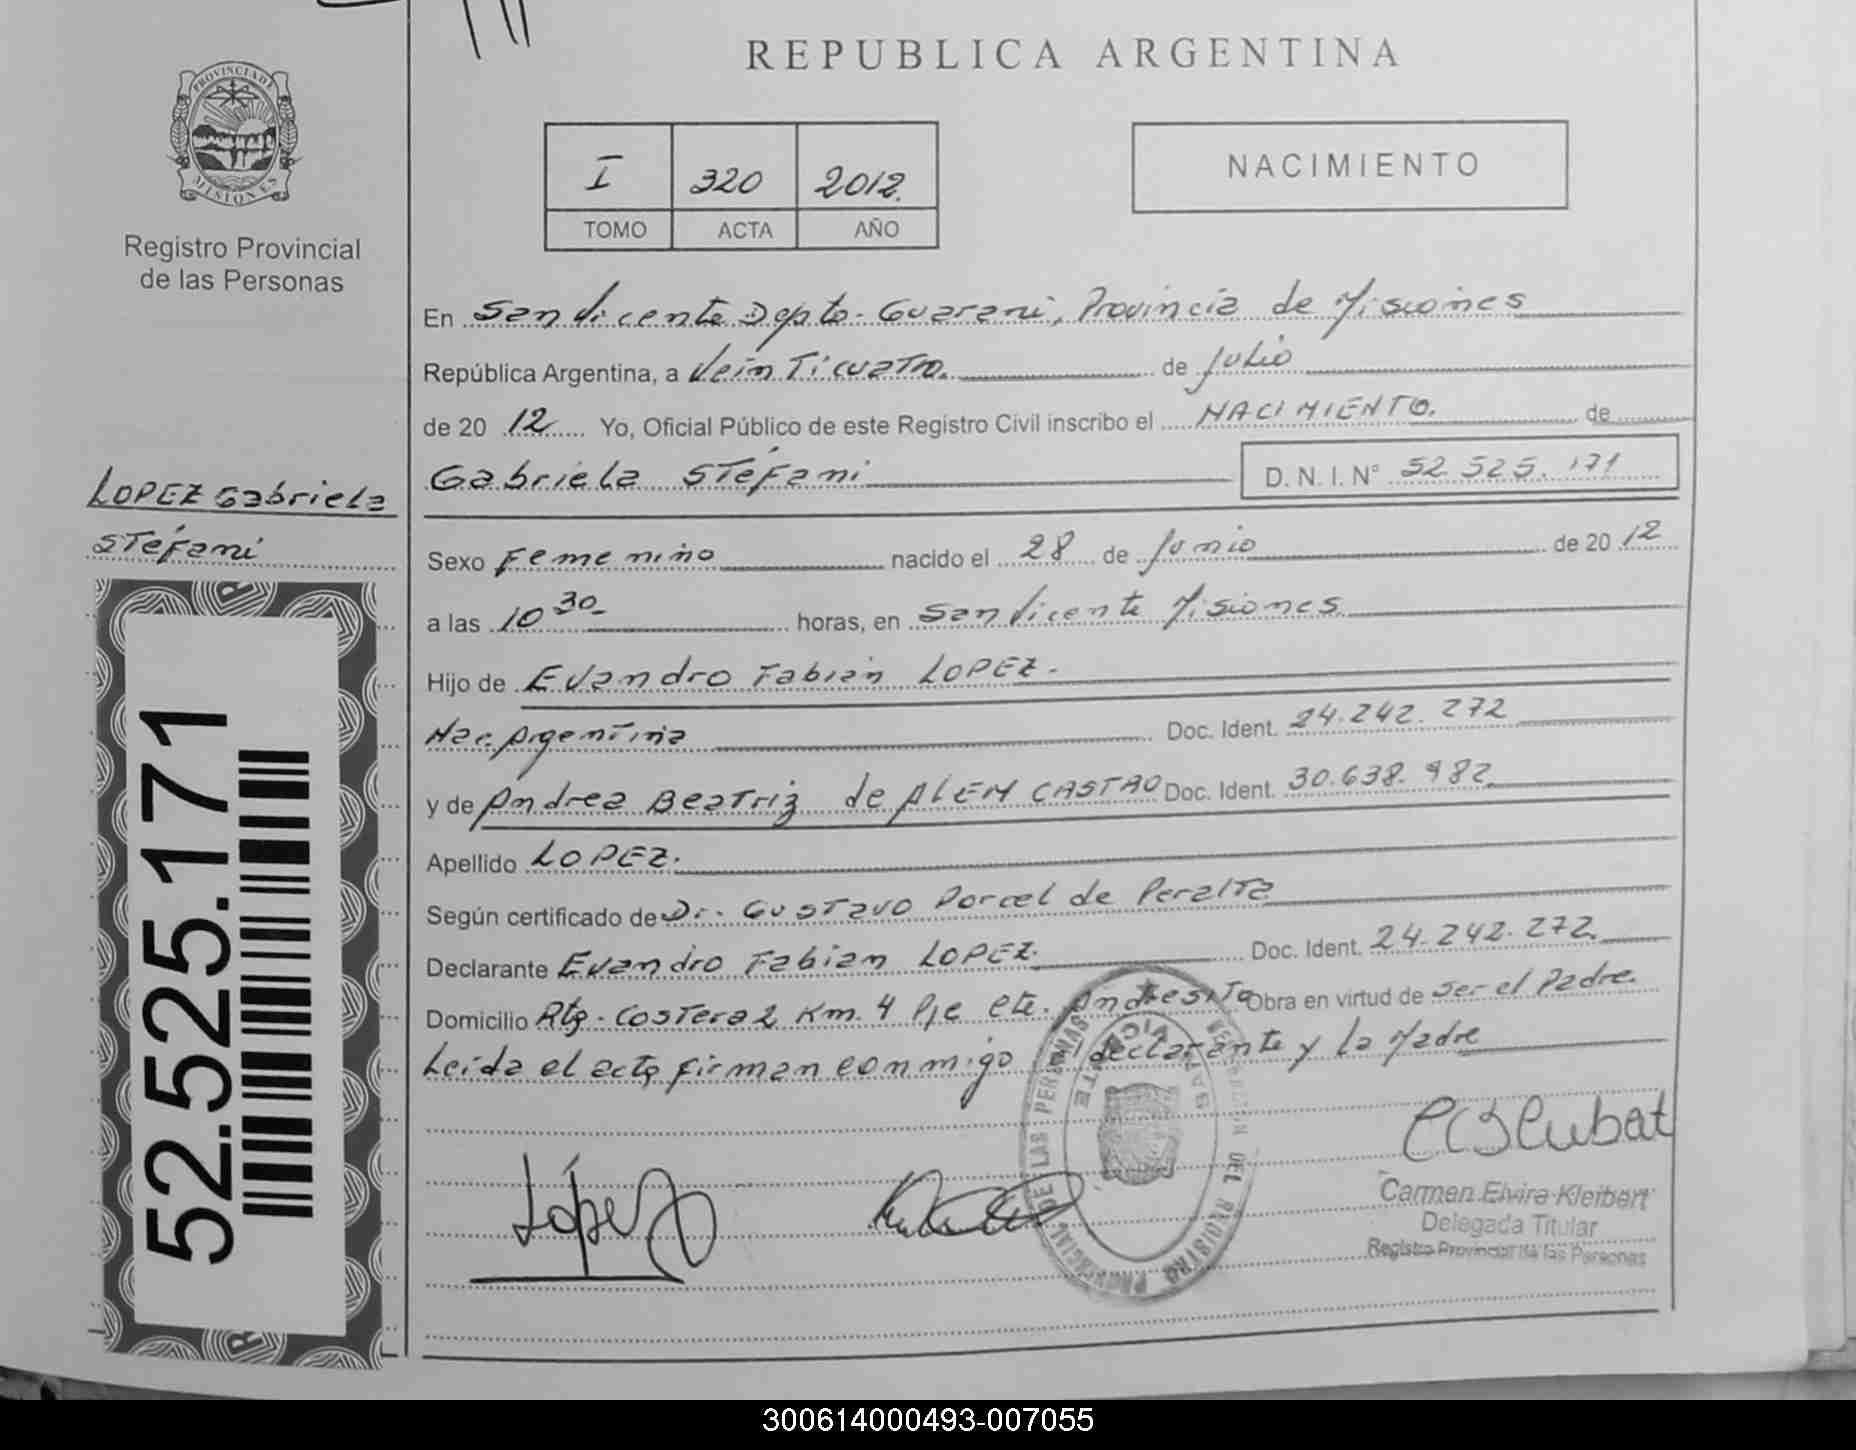 REPUBLICA ARGENTINA
PROVINCIA DE MISIONES
Registro Provincial
de las Personas
I 320 2012.
TOMO ACTA AÑO
NACIMIENTO
En San Vicente Depto. Guarani, Provincia de Misiones
República Argentina, a Veinticuatro. de Julio
de 2012 Yo, Oficial Público de este Registro Civil inscribo el NACIMIENTO. de
Gabriela Stéfani D. N. I. N° 52.525.171
LOPEZ Gabriela
Stéfani
Sexo Femenino nacido el 28 de Junio de 2012
a las 10 30 horas, en San Vicente Misiones
Hijo de Evandro Fabián LOPEZ.
Nac. Argentina Doc. Ident. 24.242.272
y de Andrea Beatriz de ALEM CASTRO Doc. Ident. 30.638.982
Apellido LOPEZ.
Según certificado de Dr. Gustavo Porcel de Peralta
Declarante Evandro Fabian LOPEZ. Doc. Ident. 24.242.272.
Domicilio Rta. Costera 2 Km. 4 Pje Cte. Andresito Obra en virtud de ser el Padre.
Leída el acta firman conmigo declarante y la Madre
52.525.171
López
Carmen Elvira Kleibert
Delegada Titular
Registro Provincial de las Personas
300614000493-007055